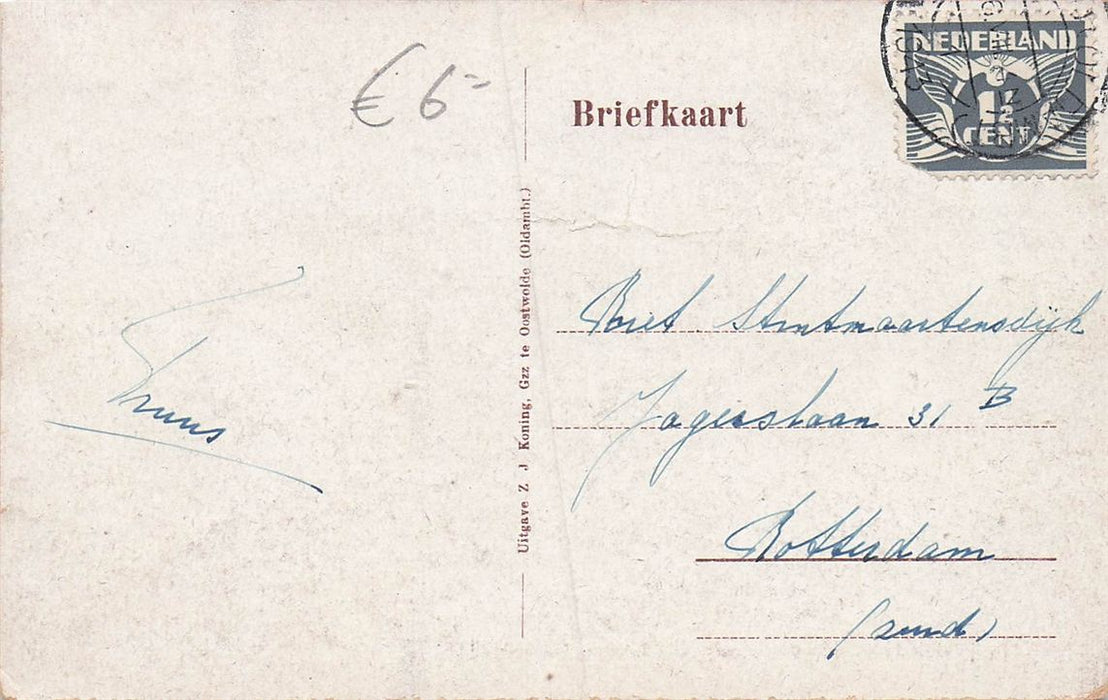 € 6-
Briefkaart
NEDERLAND
1½
CENT
Uitgave Z J Koning, Gzz te Oostwolde (Oldambt.)
Truus
Strntmaartensdijk
Jagerslaan 31 B
Rotterdam
(zuid)